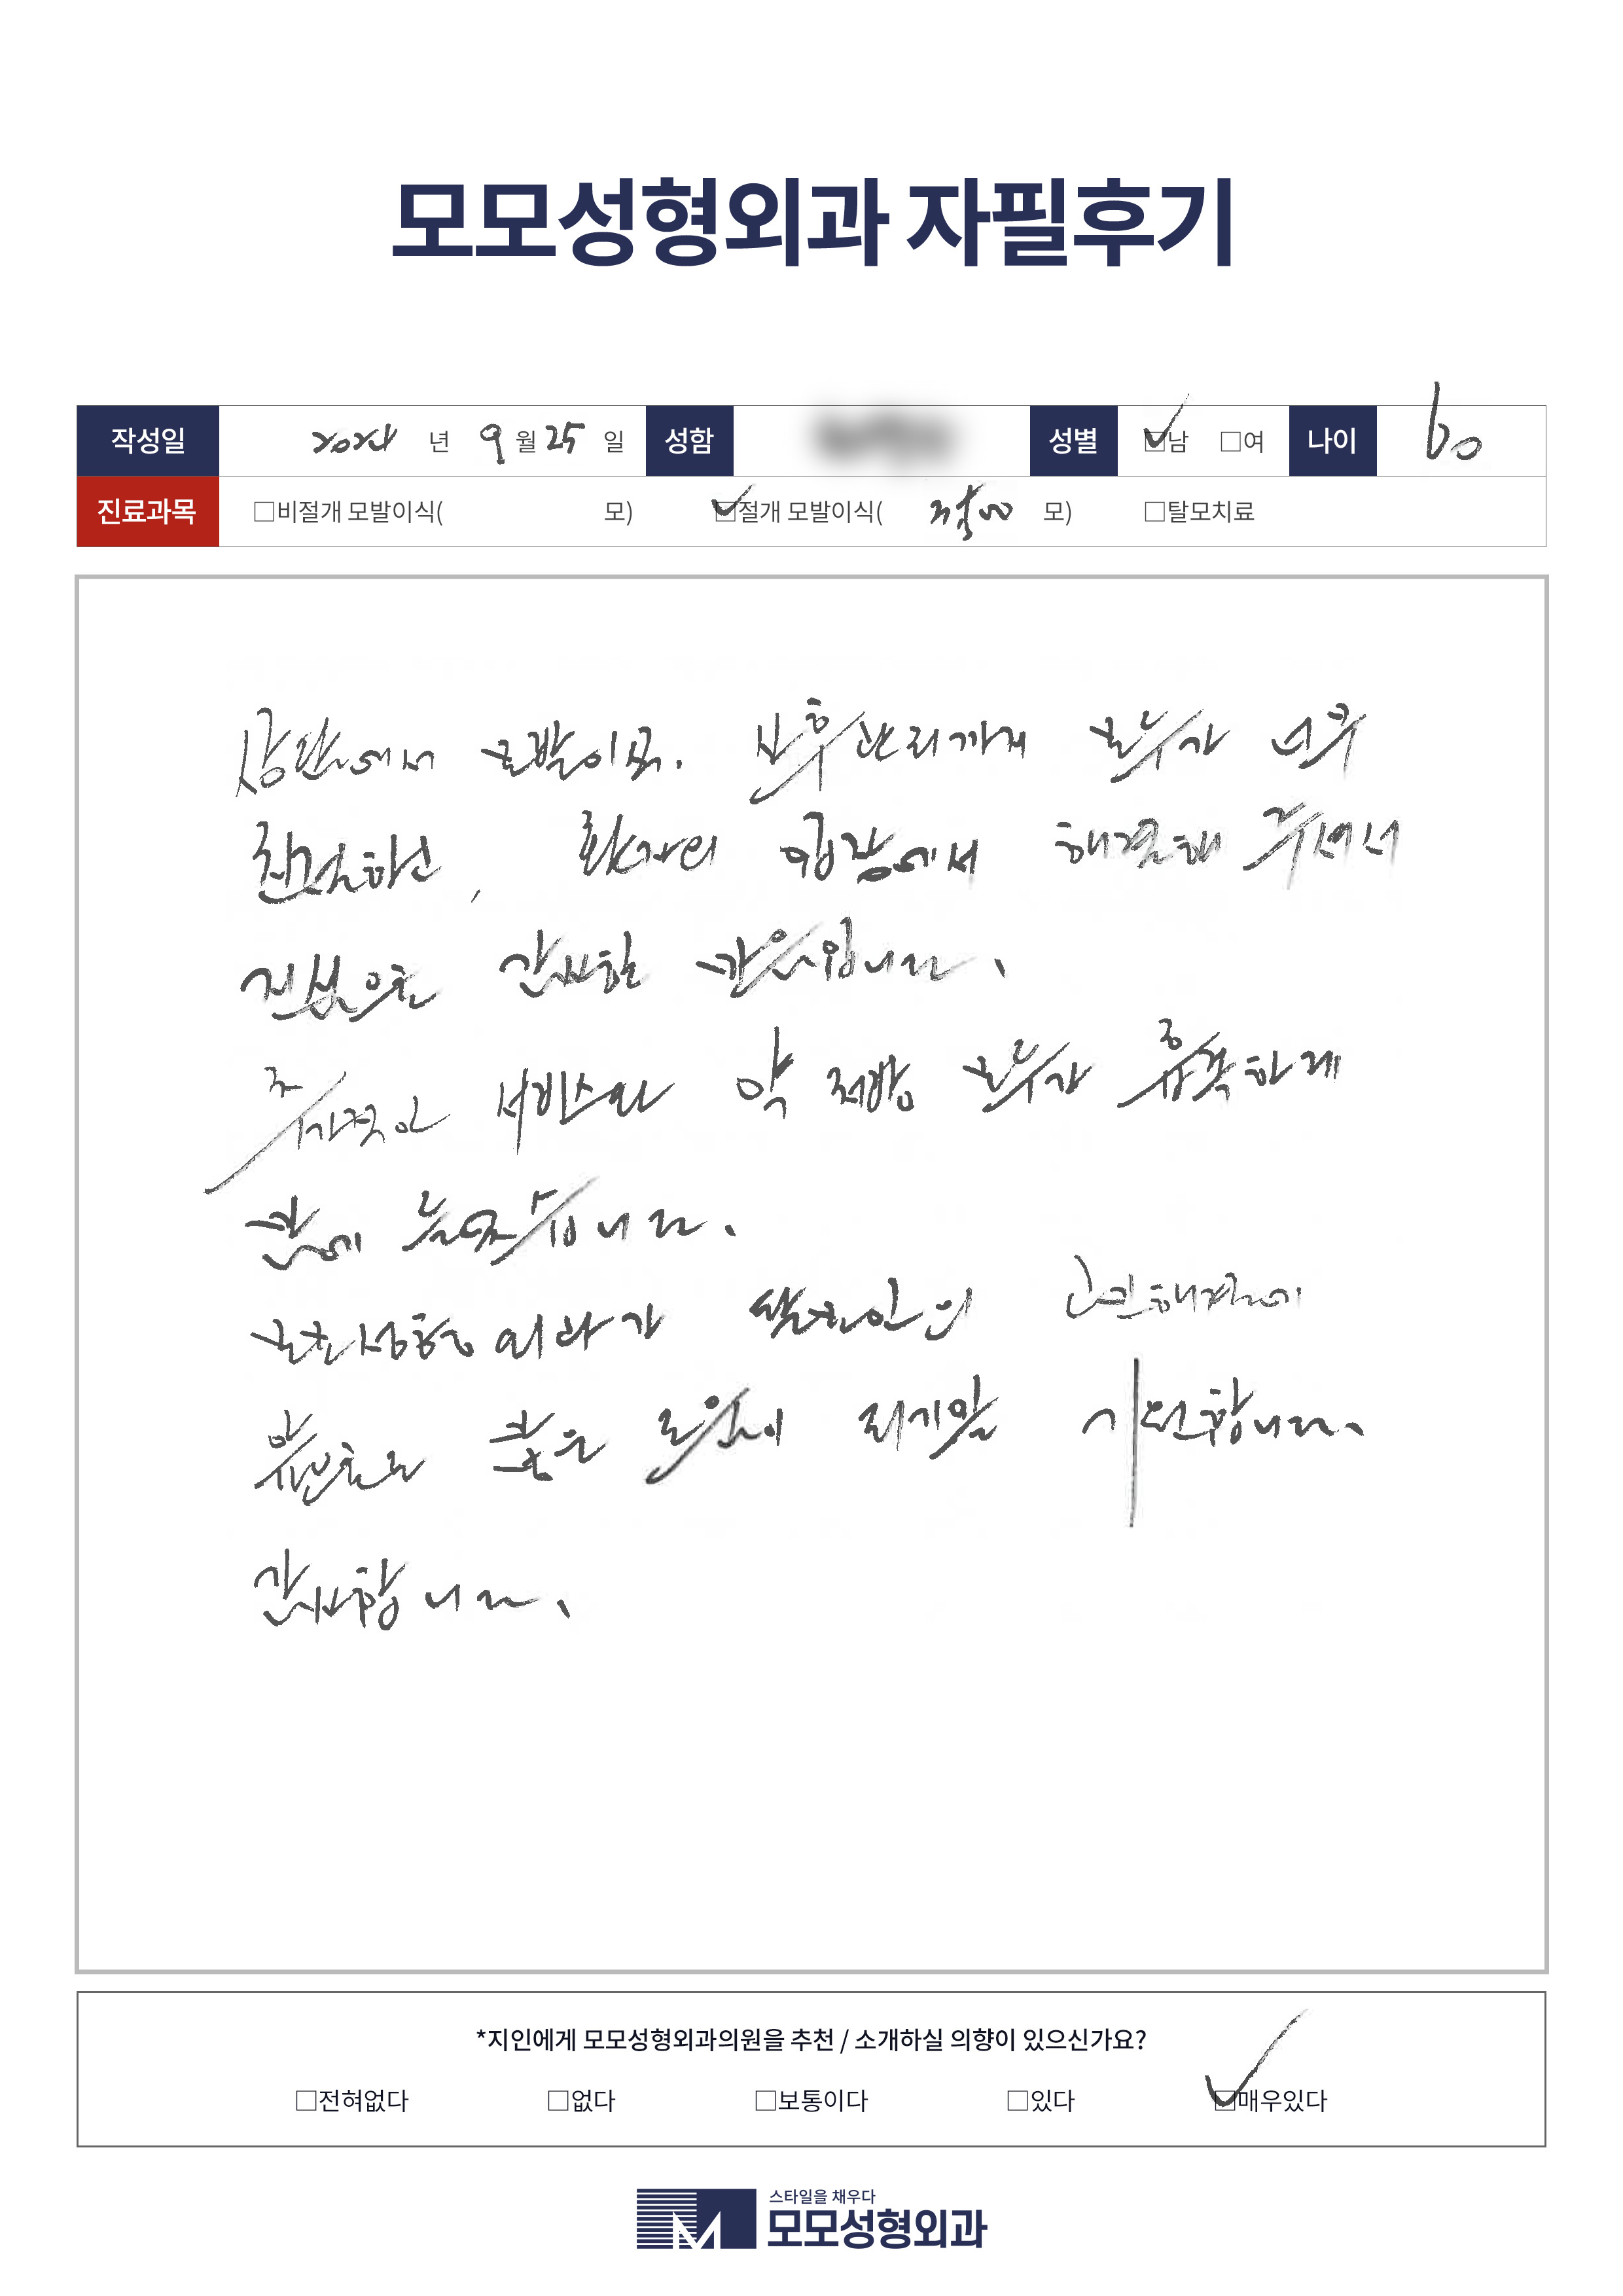 모모성형외과 자필후기
작성일 2024 년 9 월 25 일 성함 성별 ☑남 □여 나이 60
진료과목 □비절개 모발이식( 모) ☑절개 모발이식( 모) □탈모치료
상담에서 모발이식, 사후관리까지 모두가 너무
친절하신, 환자의 입장에서 해결해 주셔서
진심으로 감사할 마음입니다.
추가적인 서비스와 약 처방 모두가 흡족하게
맘에 놓였습니다.
모모성형외과가 만인의 고민해결에
앞으로도 많은 도움이 되기를 기원합니다.
감사합니다.
*지인에게 모모성형외과의원을 추천 / 소개하실 의향이 있으신가요?
□전혀없다 □없다 □보통이다 □있다 ☑매우있다
스타일을 채우다
모모성형외과